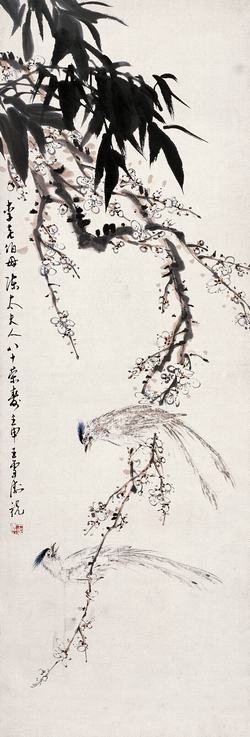 李老伯母陳太夫人八十榮慶壬申王雪濤祝